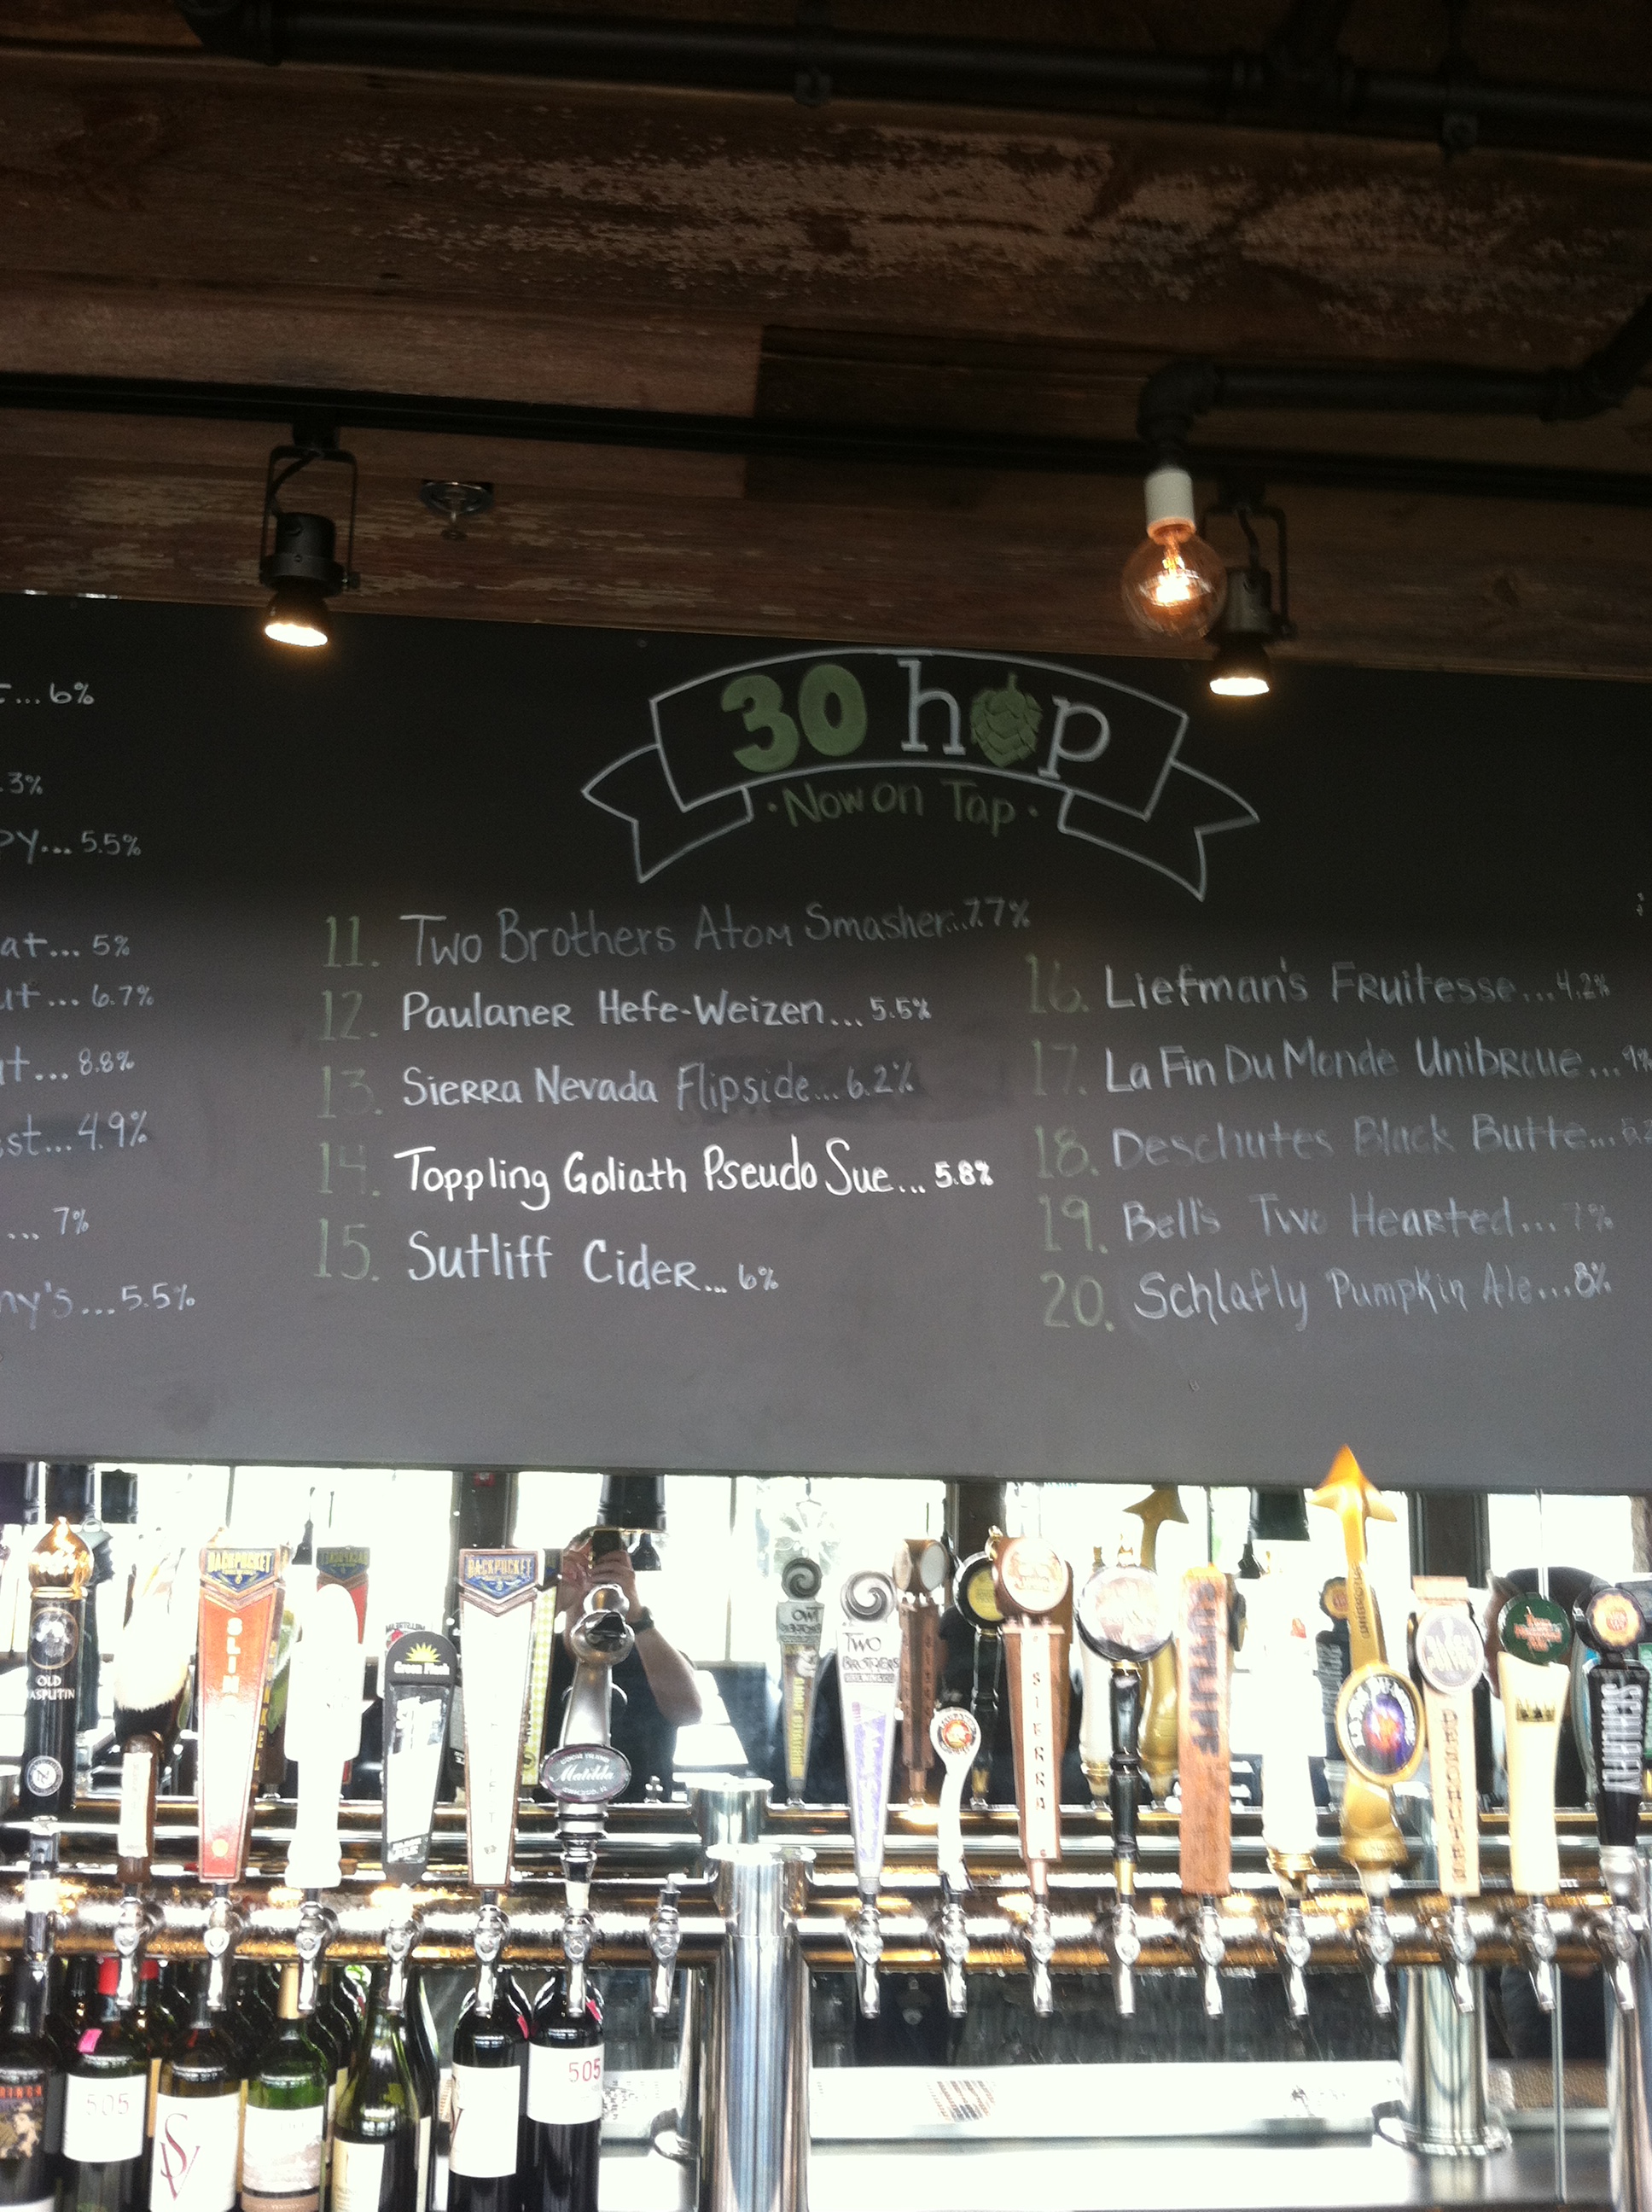 30 hop
· Now on Tap ·
... 6%
.3%
py... 5.5%
at... 5%
ut... 6.7%
ut... 8.8%
st... 4.9%
... 7%
ny's... 5.5%
11. Two Brothers Atom Smasher... 7.7%
12. Paulaner Hefe-Weizen... 5.5%
13. Sierra Nevada Flipside... 6.2%
14. Toppling Goliath Pseudo Sue... 5.8%
15. Sutliff Cider... 6%
16. Liefman's Fruitesse... 4.2%
17. La Fin Du Monde Unibroue... 9%
18. Deschutes Black Butte...
19. Bell's Two Hearted... 7%
20. Schlafly Pumpkin Ale... 8%
OLD
RASPUTIN
BACKPOCKET
SLING
Green Flash
BACKPOCKET
Matilda
TWO
BROTHERS
SIERRA
SUTLIFF
DESCHUTES
SCHLAFLY
505
SV
505